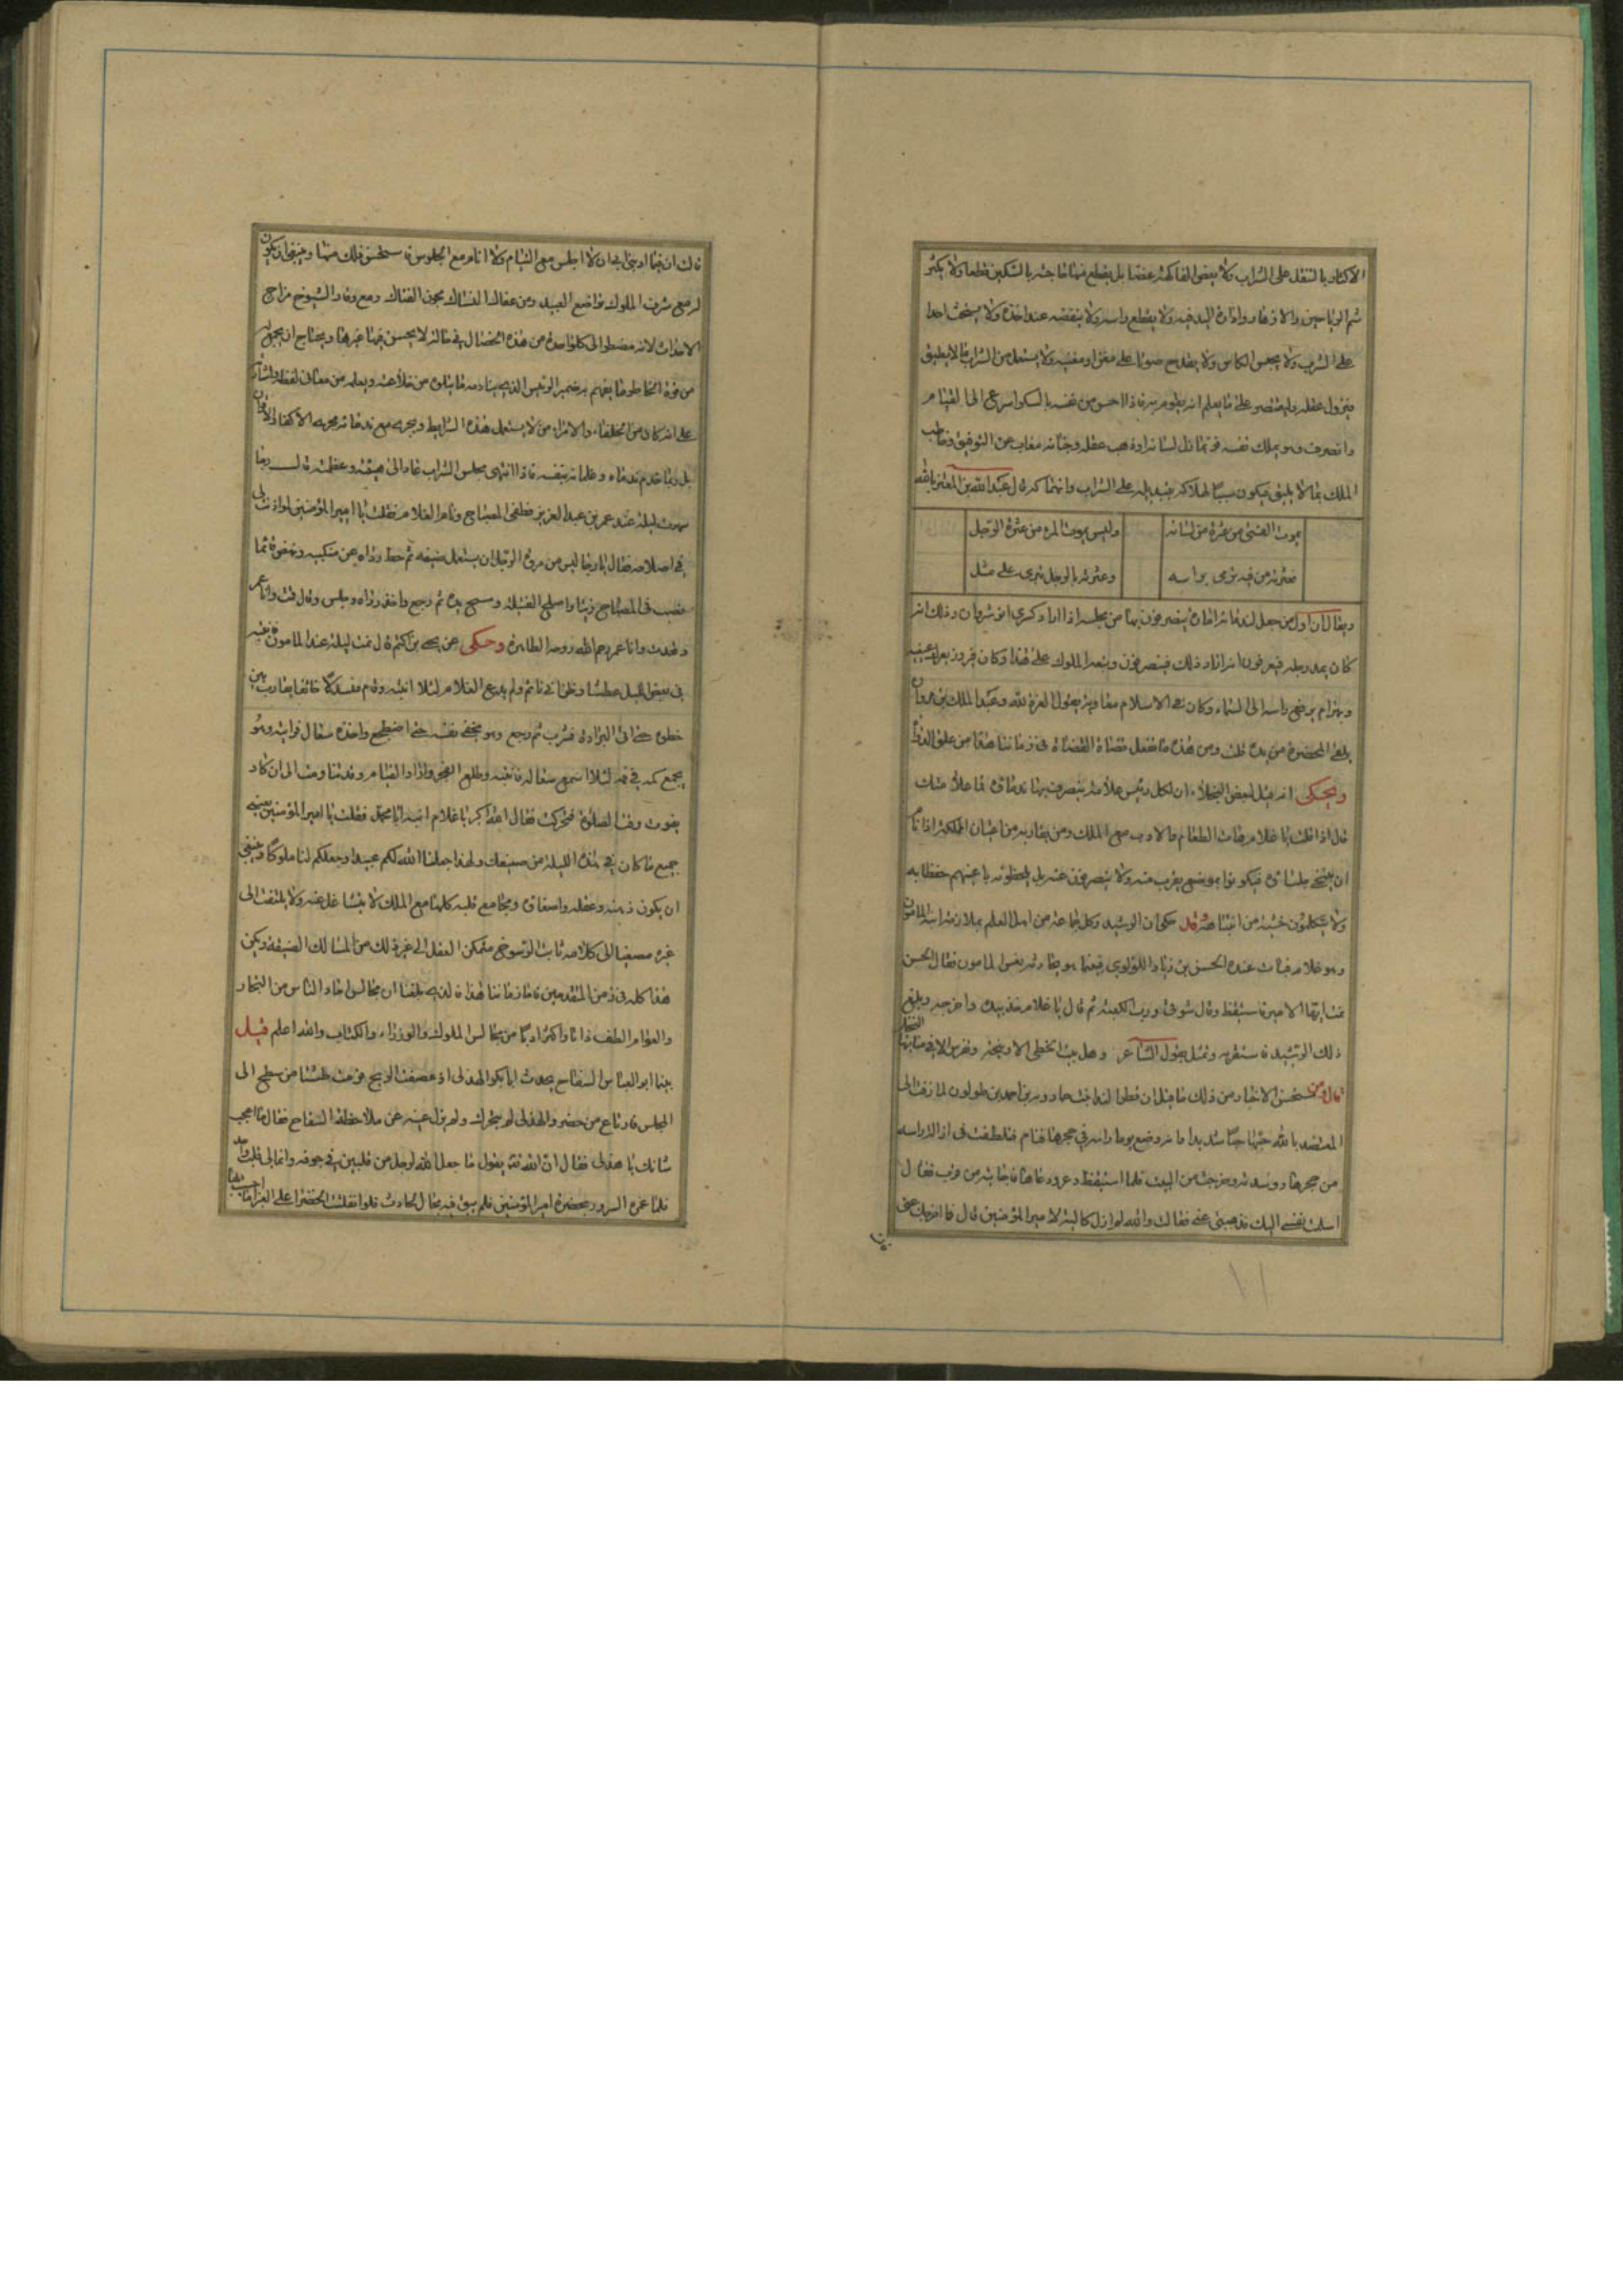 الاكثار بالتنقل على الشراب ولا يعض الفاكهة عضا بل يقطع منها ما حشر بالسكين قطعا ولا يكثر
شم الرياحين والازهار وادارة اليد فيه ولا يقطع راسه ولا ينقضه عند اخذه ولا يستحث احدا
على الشرب ولا يحبس الكاس ولا يقترح صوتا على مغن او مغنية ولا يستعمل من الشراب ما لا يطيق
فيزول عقله وليقتصر على ما يعلم انه يقوم به فاذا احس من نفسه بالسكر اسرع الى القيام
وانصرف وهو يملك نفسه فربما زل لسانه اذ ذهب عقله وجنانه مغاب عن التوفيق وخاطب
الملك بما لا يليق فيكون سببا لهلاكه على الشراب وانهماكه قال عبد الله بن المعتز بالله
يموت الفتى من عثرة من لسانه وليس يموت المرء من عثرة الرجل
فعثرته من فيه ترمى براسه وعثرته بالرجل تبرى على مهل
ويقال ان اول من جعل لندمائه امارة ينصرفون بها من مجلسه اذا اراد كسرى انوشروان وذلك انه
كان يمد رجله فيعرفون انه اراد ذلك فينصرفون وتبعه الملوك على هذا وكان فيروز يعرك عينيه
وبهرام يرفع راسه الى السماء وكان فى الاسلام معاوية يقول العزة لله وعبد الملك بن مروان
يلقى المخصرة من يده قلت ومن هذه ما تفعل قضاة القضاة فى زماننا هذا من غلق الدواة
ويحكى انه قيل لبعض البخلاء ان لكل رئيس علامة ينصرف بها ندماؤه فما علامتك
قال اذا قلت يا غلام هات الطعام والادب مع الملك ومن يقاربه من اعيان المملكة اذا نام
ان ينتحى جلساؤه فيكونوا بموضع يقرب منه ولا ينصرفون عنه بل يلحظونه باعينهم حفظا به
ولا يتكلمون خشية من انتباهه قال حكى ان الرشيد وكل جماعة من اهل العلم بملازمة ابنه المامون
وهو غلام فبات عنده الحسن بن زياد اللؤلوى فبينما هو يحادثه نعس المامون فقال الحسن
نمت ايها الامير فاستيقظ وقال سوقى ورب الكعبة ثم قال يا غلام خذ بيده واخرجه وبلغ
ذلك الرشيد فاستقربه وتمثل بقول الشاعر وهل ينبت الخطى الا وشيجه وتغرس الا فى منابتها النخل
قال ومن مستحسن الانتباه من ذلك ما قيل ان قطر الندا بنت خمارويه بن احمد بن طولون لما زفت الى
المعتضد بالله احبها حبا شديدا وانه وضع يوما راسه فى حجرها فنام فتلطفت فى ازالة راسه
من حجرها ووسدته وخرجت من البيت فلما استيقظ دعا فجاءته من قرب فقال
اسلمت نفسى اليك فذهبت عنى فقالت والله لم ازل كالبة لامير المؤمنين قال فما اخرجك عنى
قالت ان مما ادبنى به ابى ان لا اجلس مع النيام ولا انام مع الجلوس فاستحسن ذلك منها وينبغى ان يكون
له مع شرف الملوك تواضع العبيد ومن عفاف النساك مجون الفتاك ومع وقار الشيوخ مزاح
الاحداث لانه مضطر الى كل واحدة من هذه الخصال فى حالة لا يحسن فيها غيرها ويحتاج ان يجمع
من قوة الخاطر ما يفهم به ضمير الرئيس الذى ينادمه مما يبلوه من خلائقه ويعلمه من معانى لفظه واشارته
على انه كان من الخلفاء والامراء من لا يستعمل هذه الشرايط ويجريه مع ندمائه مجرى الاكفاء والاخوان
بل ربما خدم ندماءه وغلمانه بنفسه فاذا انتهى مجلس الشراب عاد الى هيبته وعظمته قال رجاء
سمرت ليلة عند عمر بن عبد العزيز فطفى المصباح ونام الغلام فقلت يا امير المؤمنين لو اذنت لى
فى اصلاحه فقال يا رجا ليس من مروة الرجل ان يستعمل ضيفه ثم حط رداه عن منكبيه
فصب فى المصباح زيتا واصلح الفتيلة ومسح يده ثم رجع واخذ رداه وجلس وقال قمت وانا عمر
وقعدت وانا عمر رحم الله روحه الطاهرة وحكى عن يحيى بن اكثم قال نمت ليلة عند المامون فانتبه
فى بعض الليل عطشا وظن انى نائم ولم يدع الغلام لئلا انتبه وقام متسللا خائفا يقارب بين
خطوه حتى اتى البرادة فشرب ثم رجع وهو يخفى نفسه حتى اضطجع واخذه سعال فرايته وهو
يجمع كمه فى فمه لئلا اسمع سعاله فانتبه وطلع الفجر واراد القيام وقد تناومت الى ان كاد
يفوت وقت الصلوة فتحركت فقال الله اكبر يا غلام انبه ابا محمد فقلت يا امير المؤمنين بعينى
جميع ما كان فى هذه الليلة من صنيعك ولهذا جعلنا الله لكم عبيدا وجعلكم لنا ملوكا وينبغى
ان يكون ذهنه وعقله واسماعه ومجامع قلبه كلها مع الملك لا يتشاغل عنه ولا يلتفت الى
غيره مصغيا الى كلامه ثابت الرسوخ متمكن العقل الى غير ذلك من المسالك الضيقة ويكن
هذا كله فى زمن المتقدمين فاما زماننا هذا فالذى بلغنا ان مجالس احاد الناس من التجار
والعوام الطف ذاتا واكثر ادبا من مجالس الملوك والوزراء والكتاب والله اعلم قيل
بينما ابو العباس السفاح يحدث ابا بكر الهذلى اذ عصفت الريح فرمت طستا من سطح الى
المجلس فارتاع من حضر والهذلى لم يتحرك ولم يزل عينه عن ملاحظة السفاح فقال ما اعجب
شانك يا هذلى فقال ان الله تعالى يقول ما جعل الله لرجل من قلبين فى جوفه وانما لى قلب واحد
فلما غمره السرور بمحضرة امير المؤمنين فلم يبق فيه مجال لحادث فلو انقلبت الخضراء على الغبراء ما احسست بها